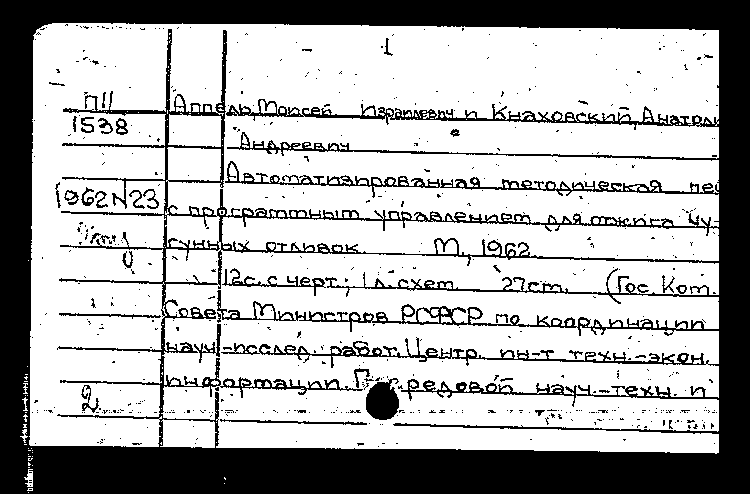 1
П11 Аппель, Моисей Израилевич и Кнаховский, Анатоли
1538
Андреевич
Автоматизированная методическая печ
1962 N 23
с программным управлением для отжига чу-
гунных отливок. М., 1962
12с. с черт.; 1 л. схем. 27см. (Гос. Ком.
Совета Министров РСФСР по координации
науч-исслед. работ. Центр. ин-т техн.-экон.
информации. редовой науч.-техн. и
2